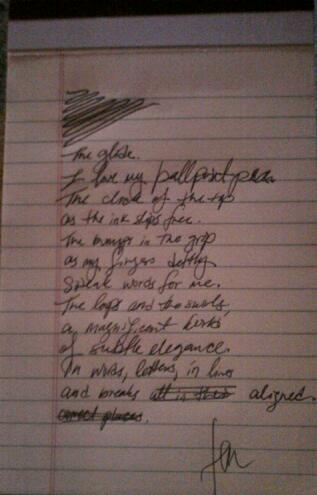 The glide.
I love my ballpoint pen.
The click of the top
as the ink slips free.
The bumps in the grip
as my fingers deftly
speak words for me.
The loops and the swirls,
a magnificent
of subtle elegance.
In words, letters, in lines
and breaks all in their aligned.
correct places.